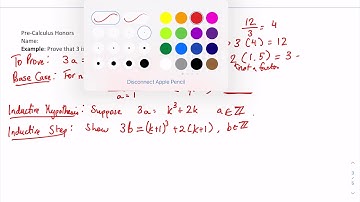 Pre-Calculus Honors
Name:
Example: Prove that 3 i
To Prove: 3a =
Base Case: For n
a = 1
12/3 = 4
3 (4) = 12
2 (1.5) = 3
not a factor
Disconnect Apple Pencil
Inductive Hypothesis: Suppose 3a = k³ + 2k a ∈ ℤ.
Inductive Step: Show 3b = (k+1)³ + 2(k+1), b ∈ ℤ
3 / 5